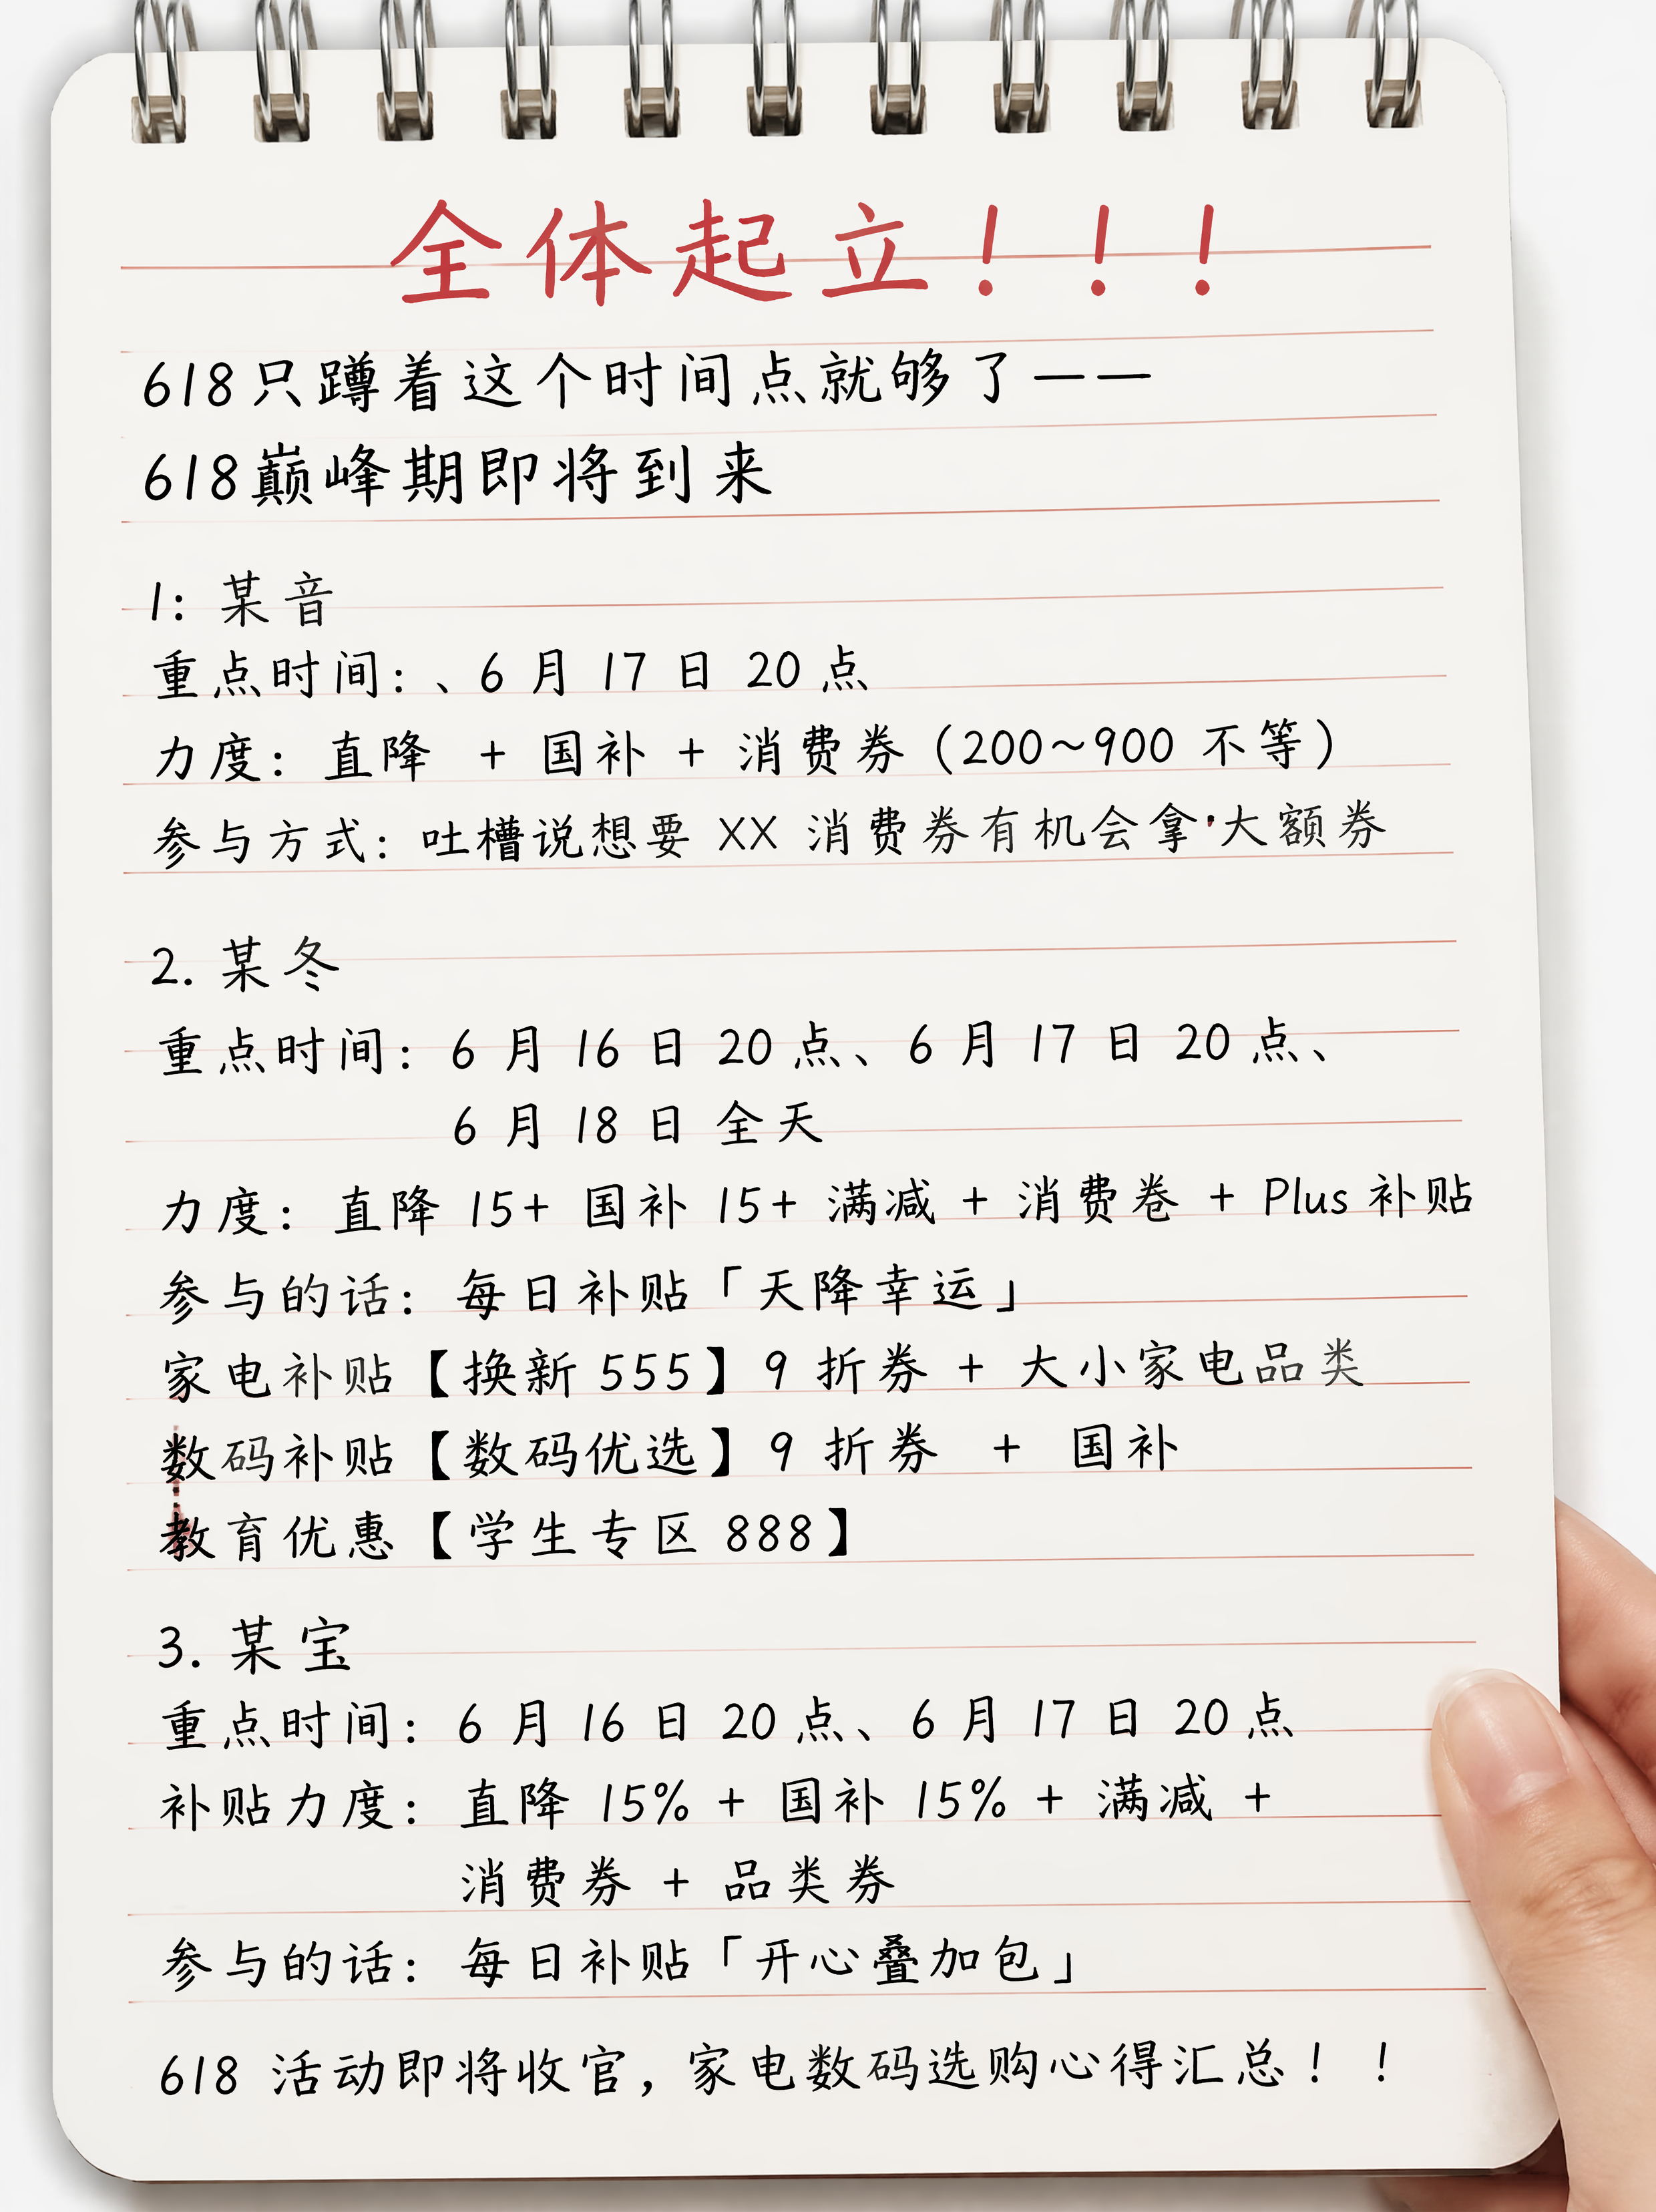 全体起立！！！
618只蹲着这个时间点就够了——
618巅峰期即将到来
1: 某音
重点时间：、6 月 17 日 20 点
力度：直降 + 国补 + 消费券（200~900 不等）
参与方式：吐槽说想要 XX 消费券有机会拿·大额券
2. 某冬
重点时间：6 月 16 日 20 点、6 月 17 日 20 点、
6 月 18 日 全天
力度：直降 15+ 国补 15+ 满减 + 消费卷 + Plus 补贴
参与的话：每日补贴「天降幸运」
家电补贴【换新 555】9 折券 + 大小家电品类
数码补贴【数码优选】9 折券 + 国补
教育优惠【学生专区 888】
3. 某宝
重点时间：6 月 16 日 20 点、6 月 17 日 20 点
补贴力度：直降 15% + 国补 15% + 满减 +
消费券 + 品类券
参与的话：每日补贴「开心叠加包」
618 活动即将收官，家电数码选购心得汇总！！